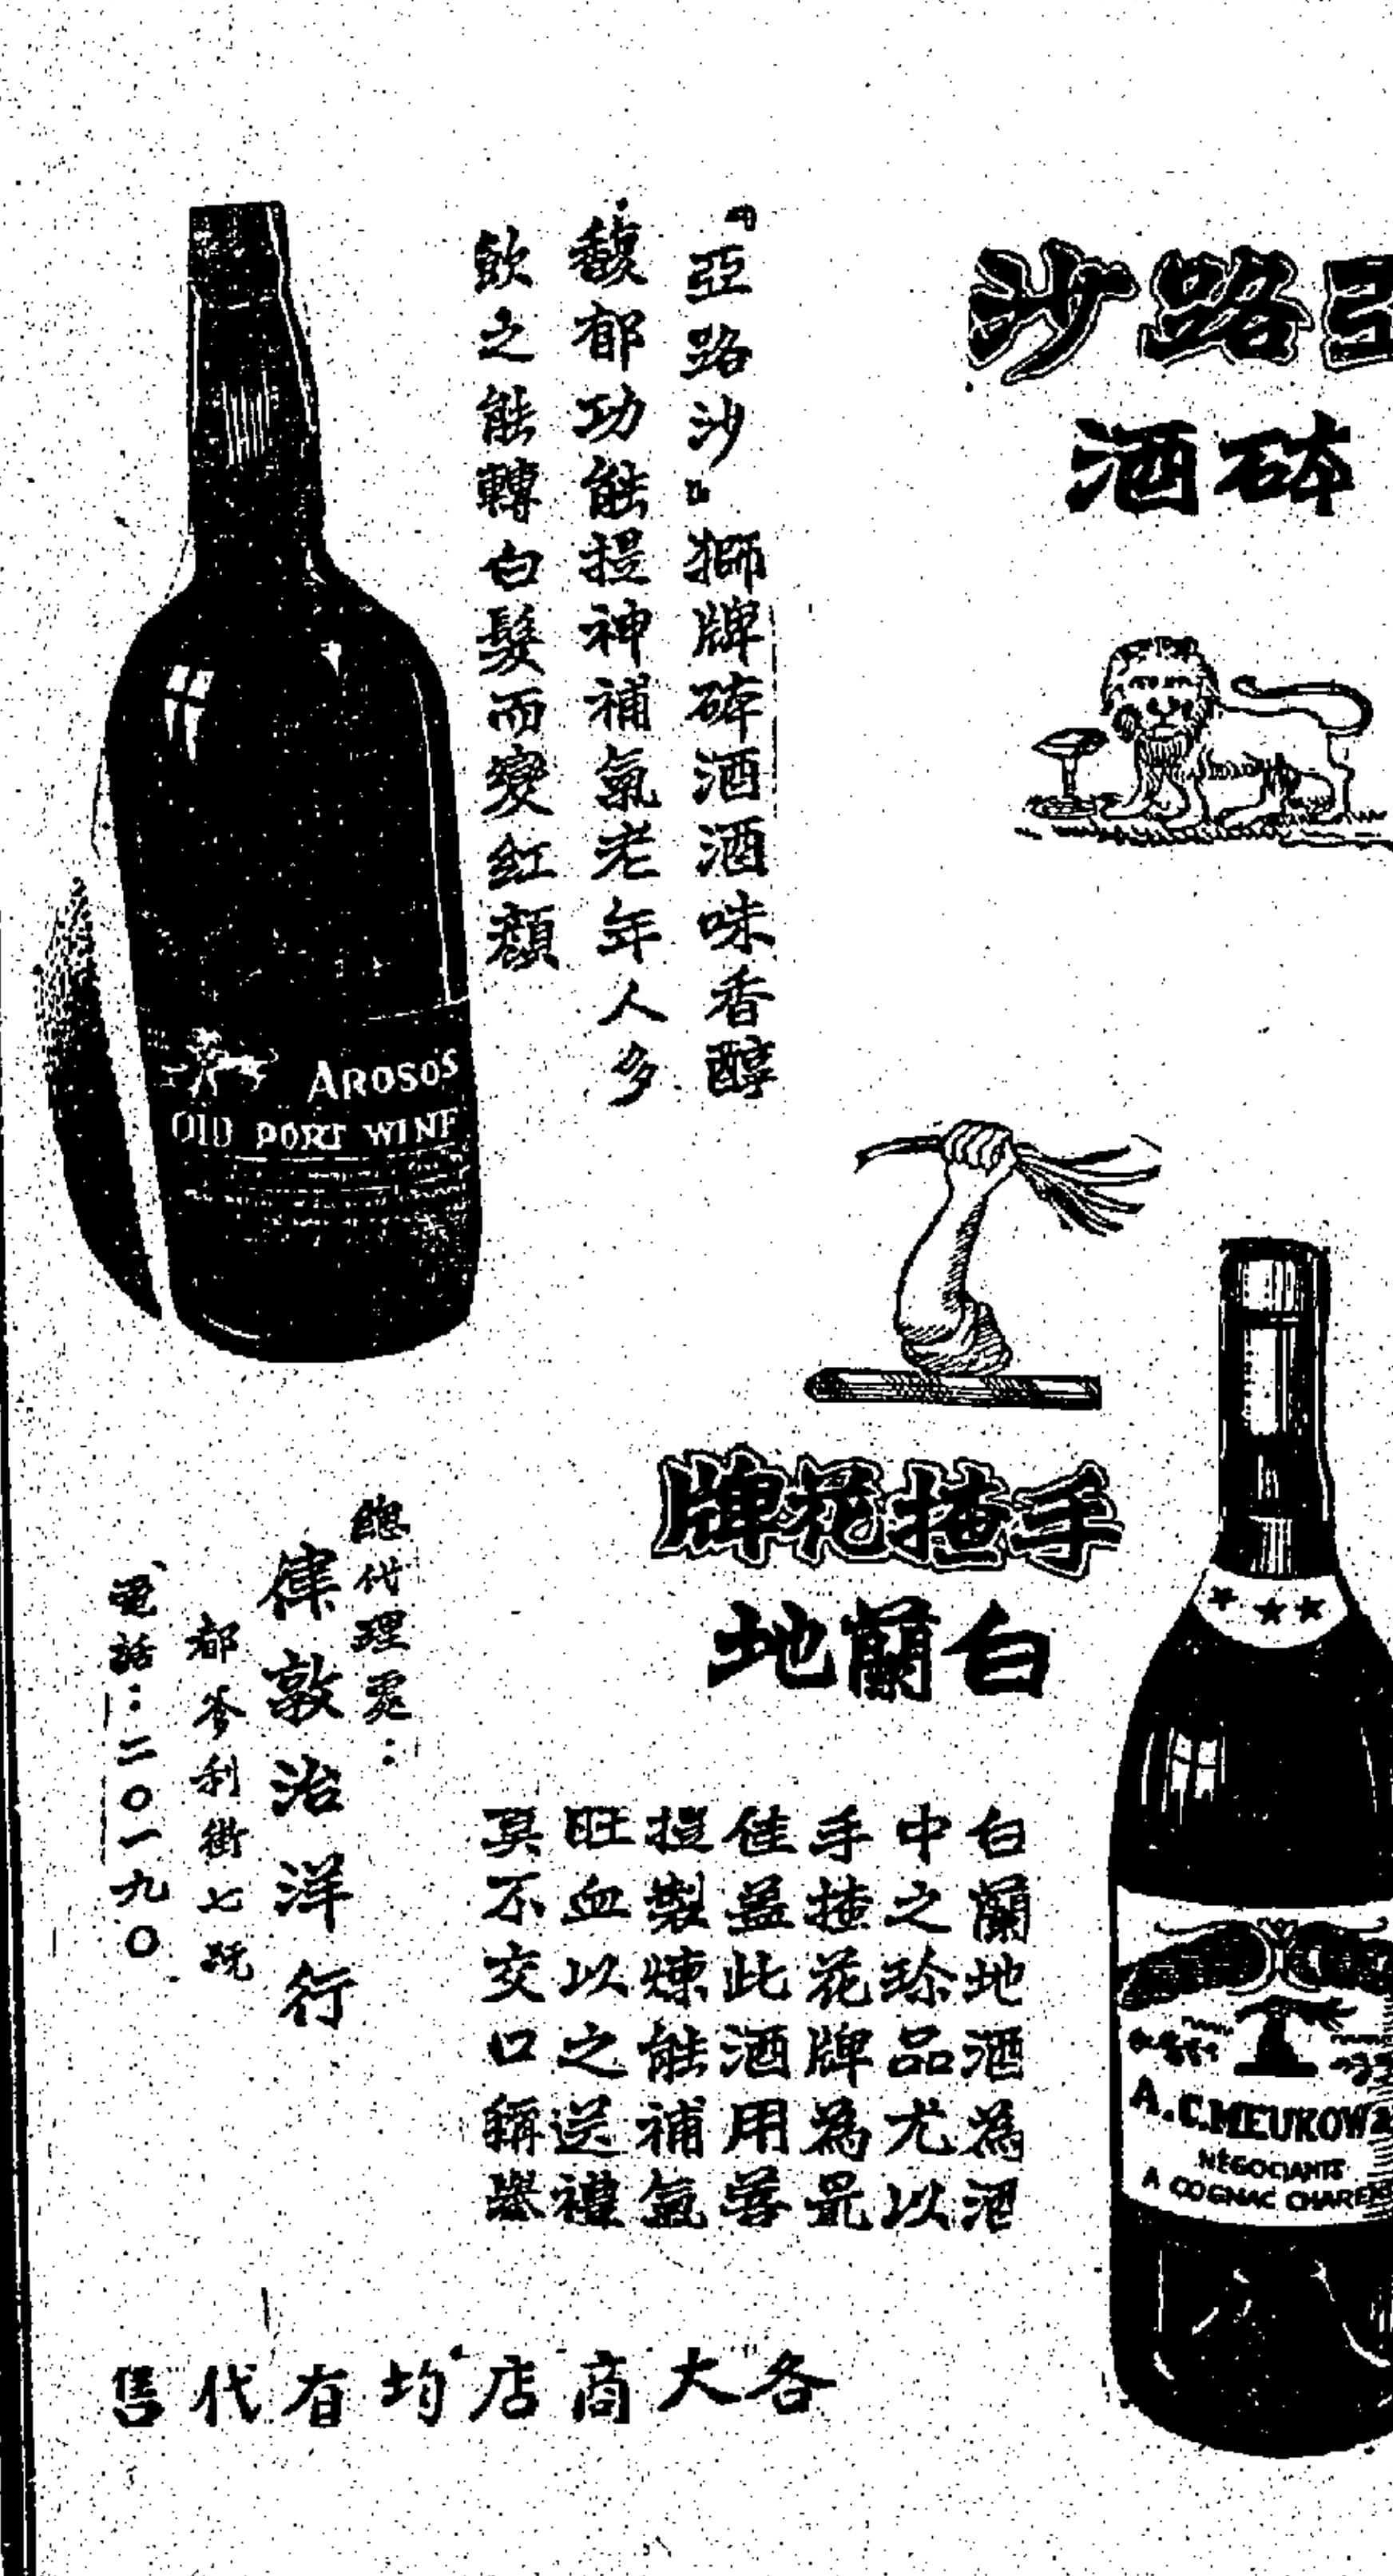 亞路沙
酒砵
『亞路沙』獅牌砵酒酒味香醇
馥郁功能提神補氣老年人多
飲之能轉白髮而變紅顏
AROSOS
OLD PORT WINE
手揸花牌
白蘭地
白蘭地酒為酒
中之珍品尤以
手揸花牌為最
佳蓋此酒用葡
提製煉能補氣
旺血以之送禮
莫不交口稱譽
A.C.MEUKOW
NÉGOCIANTS
A COGNAC CHAREN
總代理處：
律敦治洋行
都爹利街七號
電話：二〇一九〇
各大商店均有代售